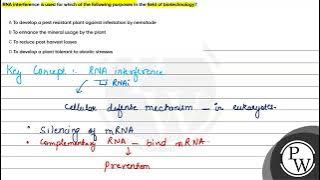 RNA interference is used for which of the following purposes in the field of biotechnology?
A To develop a pest resistant plant against infestation by nematode
B To enhance the mineral usage by the plant
C To reduce post harvest losses
D To develop a plant tolerant to abiotic stresses
Key Concept :- RNA interference
RNAi
Cellular defense mechanism - in eukaryotes
• Silencing of mRNA
• Complementary RNA - bind mRNA.
Prevention
PW